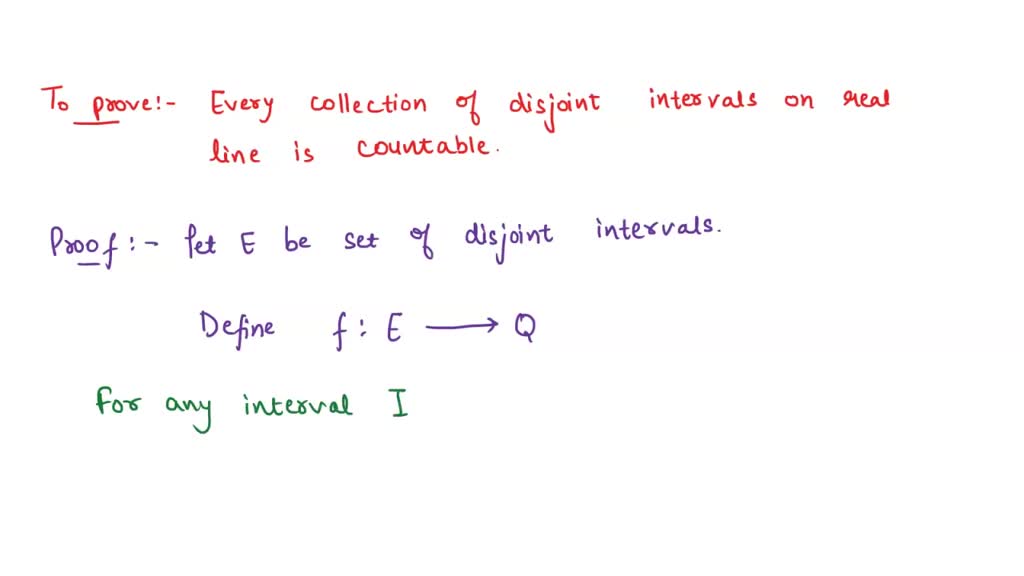 To prove:- Every collection of disjoint intervals on real
line is countable.
Proof:- let E be set of disjoint intervals.
Define f: E ⟶ Q
for any interval I